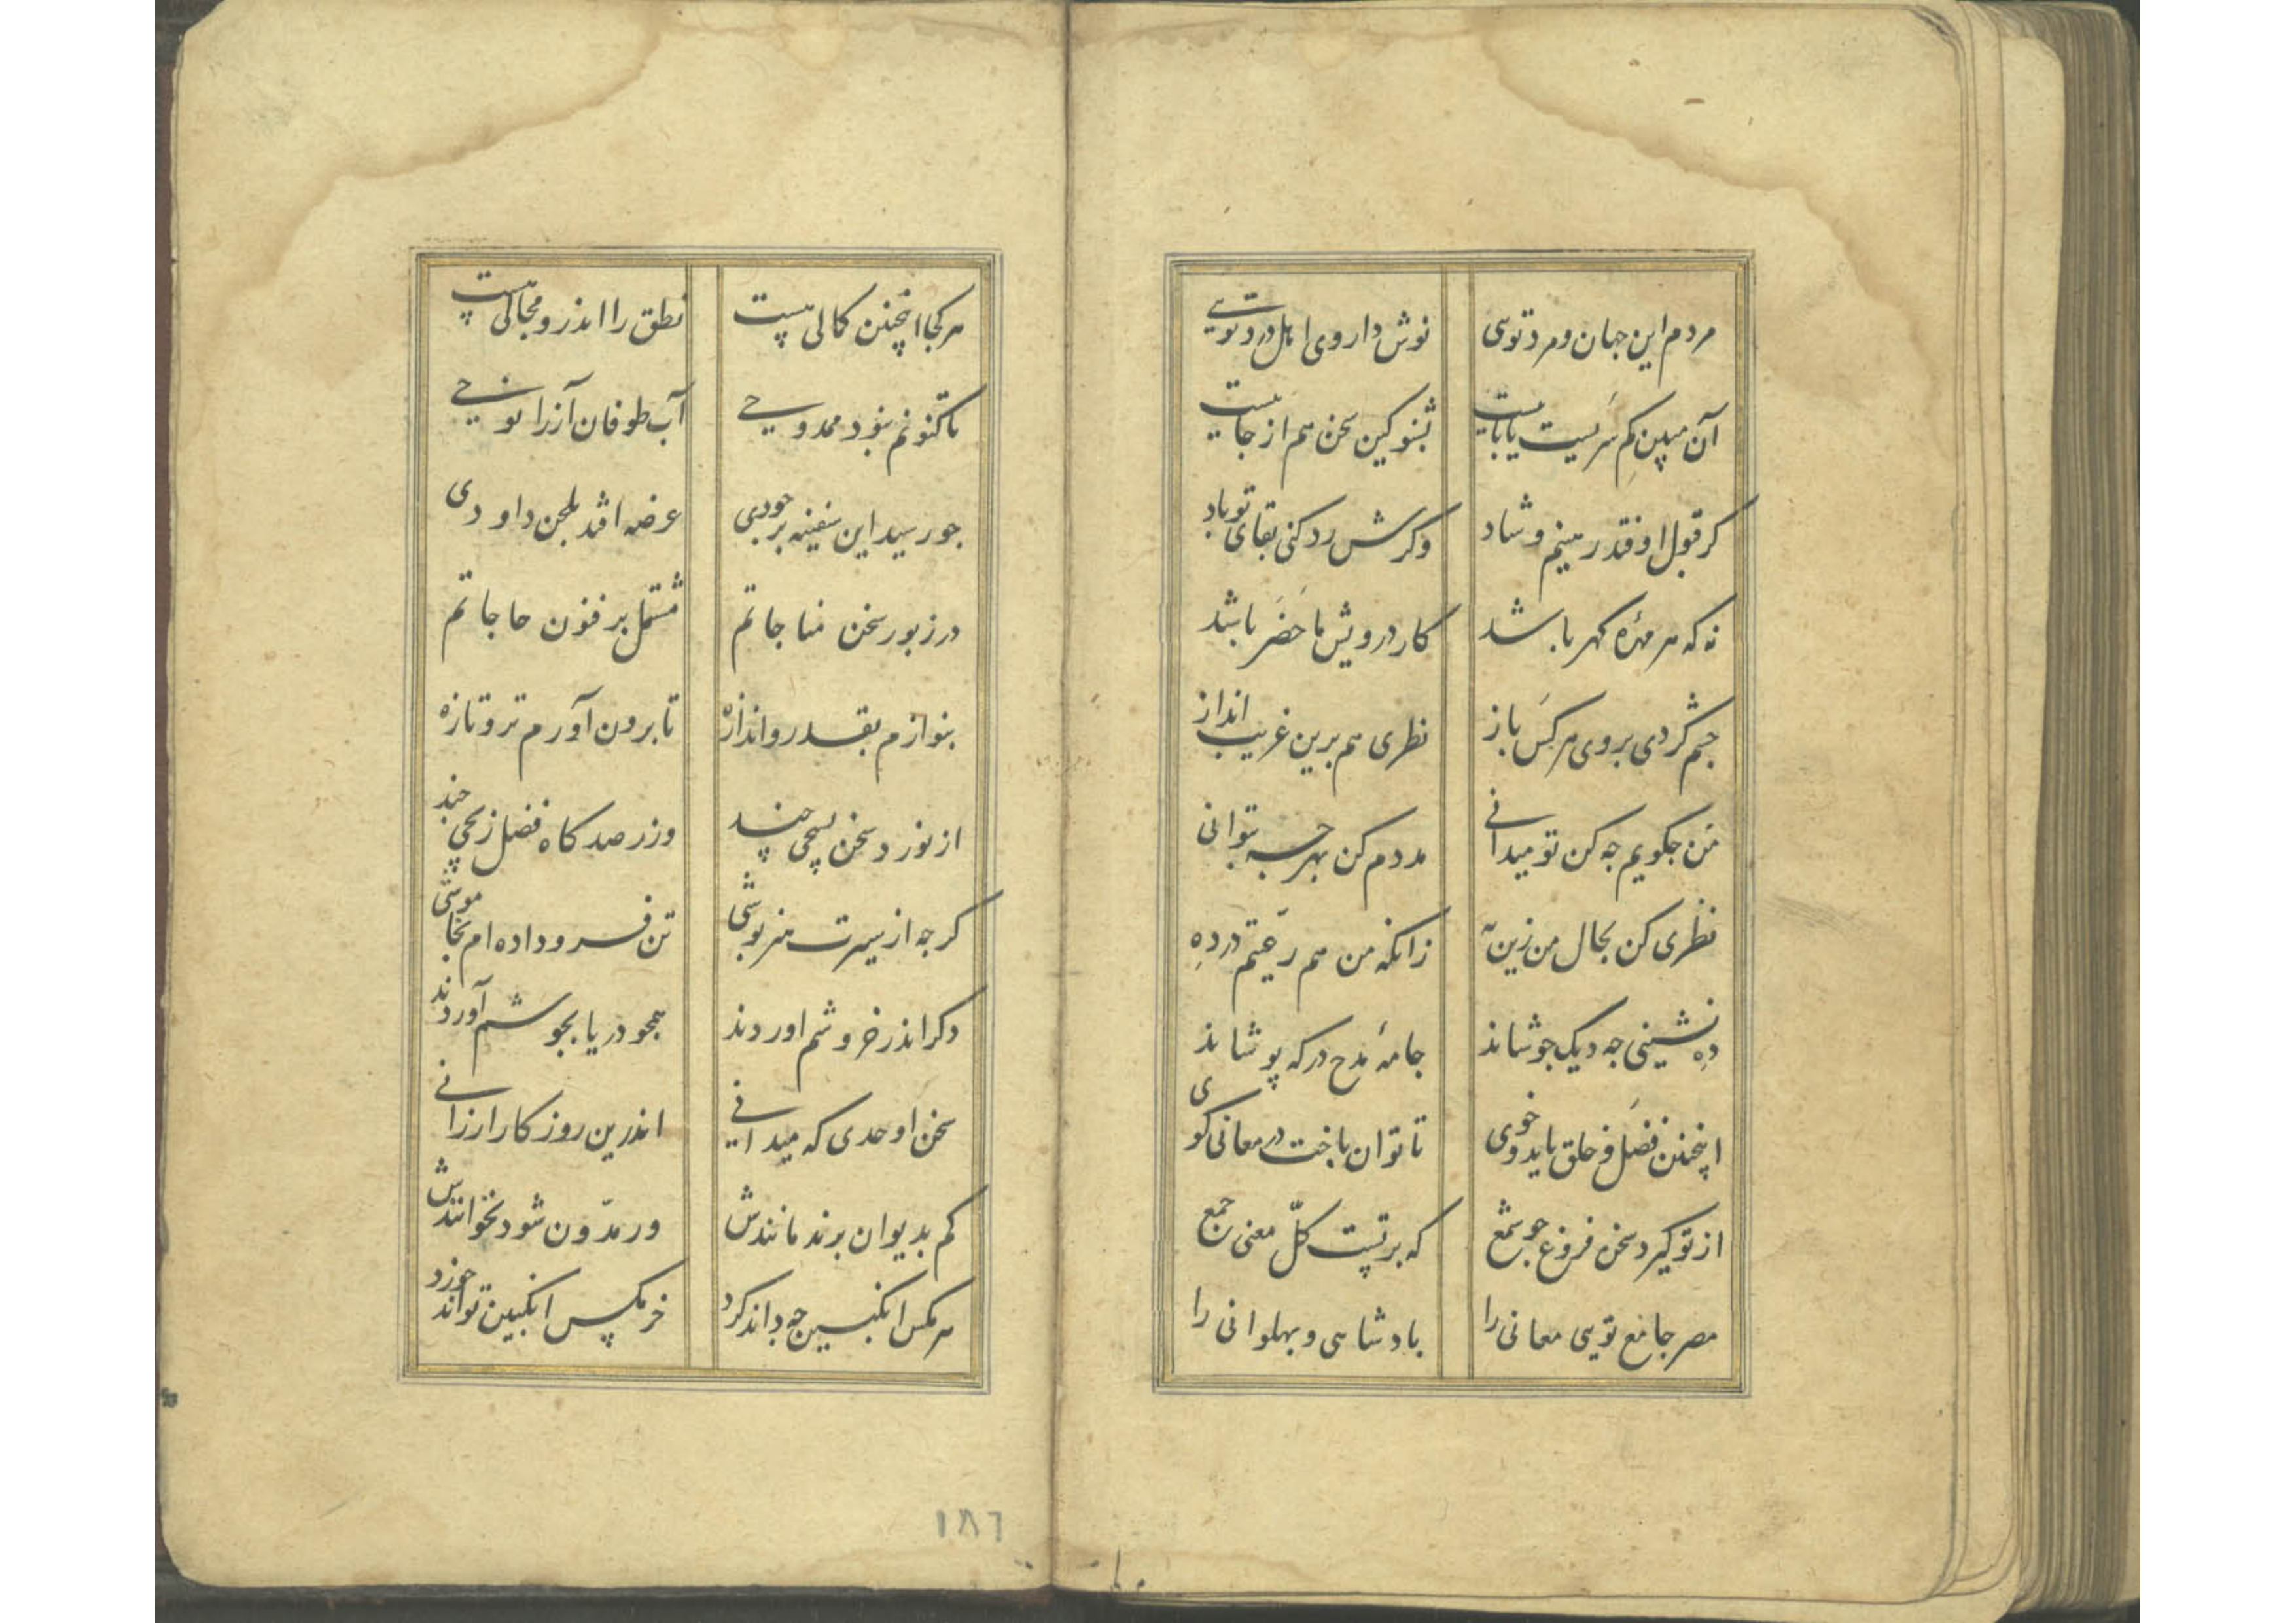 مردم این جهان و مرد تویی نوش داروی اهل درد تویی
آن مبین کم سر نیست یا پا نیست بشنو کین سخن هم از جاییست
کر قبول اوفتد رهینم و شاد وکرش رد کنی بقای تو باد
نه که هر مهره کهر باشد کار درویش ما حَضَر باشد
چشم کردی بروی هر کس باز نظری هم برین غریب انداز
من جکویم جه کن تو میدانی مددم کن بهر جه بتوانی
نظری کن بحال من زین به زانکه من هم رعیتم در ده
ده نشینی جه دیک جوشاند جامهٔ مدح در که پوشاند
اینجنین فضل و خلق باید و خوی تا توان باخت در معانی کوی
از تو کیرد سخن فروغ جو شمع که بر تست کلّ معنی جمع
مصر جامع تویی معانی را بادشاهی و بهلوانی را
هر کجا اینجنین کمالی هست نطق را اندرو مجالی هست
تا کنونم نبود ممدوحی آب طوفان آز را نوحی
جو رسید این سفینه بر جودی عرضه افتد بلحن داودی
در زبور سخن مناجاتم مشتمل بر فنون حاجاتم
بنوازم بقدر و اندازه تا برون آورم تر و تازه
از نورد سخن بسیجی جند وز رصدکاه فضل زیجی جند
کرجه از سیرت هنر بوشی تن فرو داده ام بخاموشی
دکر اندر خروشم اوردند همجو دریا بجوشم آوردند
سخن اوحدی که میدانی اندرین روزکار ارزانی
کم بدیوان برند مانندش ور مدّون شود نخوانندش
هر مکس انکبین جه داند کرد خر مکس انکبین تواند خورد
١٨٦